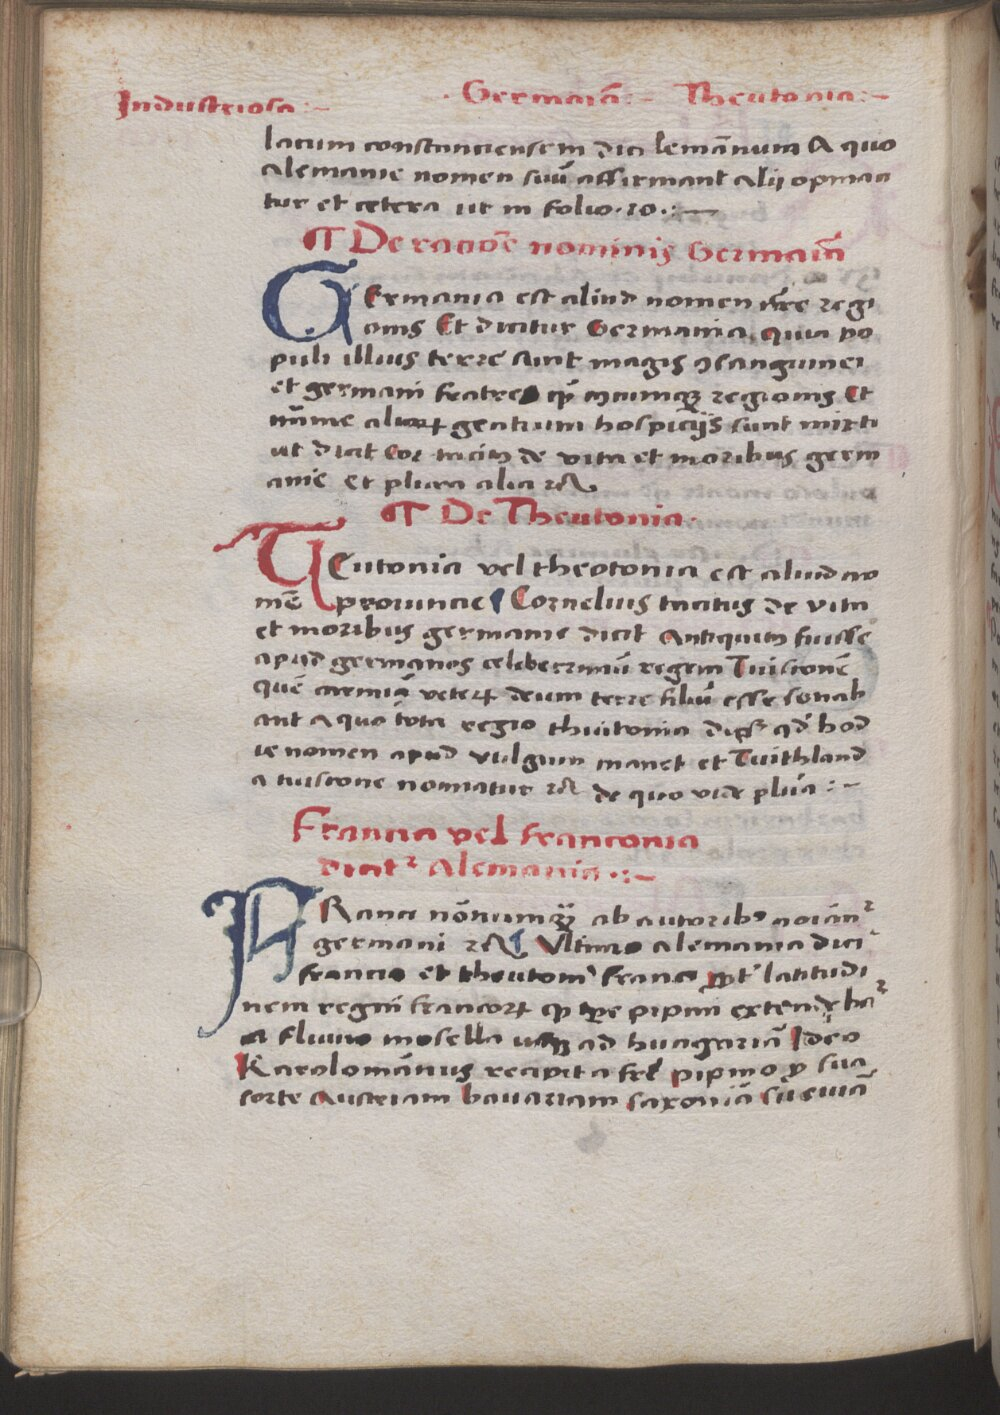 Industriosa :~ · Germaīa :~ Theutonia :~
lacum constanciensem dici lemānnum A quo
alemanie nomen suū affirmant alij opinan
tur et cetera ut in folio · 20 · :~
¶ De racōe nominis Germaīa
GErmania est aliud nomen nr̄e regi
onis Et dicitur Germania, quia po
puli illius terre sunt magis ꝯsanguinei
et germani fratres qͫ cuiuscunqꝫ regionis Et
minime aliorꝝ gentium hospicijs sunt mixti
ut dicit Cor tacitꝰ de vita et moribus germ
anie et plura alia ꝛc
¶ De Theutonia ·
TEutonia vel theotonia est aliud no
mē prouincie ¶ Cornelius tacitus de vita
et moribus germanie dicit Antiquitꝰ fuisse
apud germanos celeberrimū regem Tuisconē
quē carmiā veterꝝ deum terre filiū esse sonab
ant A quo tota regio thuitonia dicit̉ qd̓ hod
ie nomen apud vulgum manet et Tuithland
a tuiscone nominatur ꝛc de quo vide plura : ~
Francia vel franconia
dicit̉ Alemania · : ~
FRanci nōnumqꝫ ab autoribꝰ noīan̉
germani ꝛc ¶ Ultimo alemania dici
francia et theutoni franci ꝓpt̓ latitudi
nem regni francorꝝ qͫ tp̄e pipini extendebat̉
a fluuio mosella usqꝫ ad hungariā Ideo
Karolomānnus recipit a frē pipino ꝓ sua
sorte Austriam bauariam saxoniā sueuiā